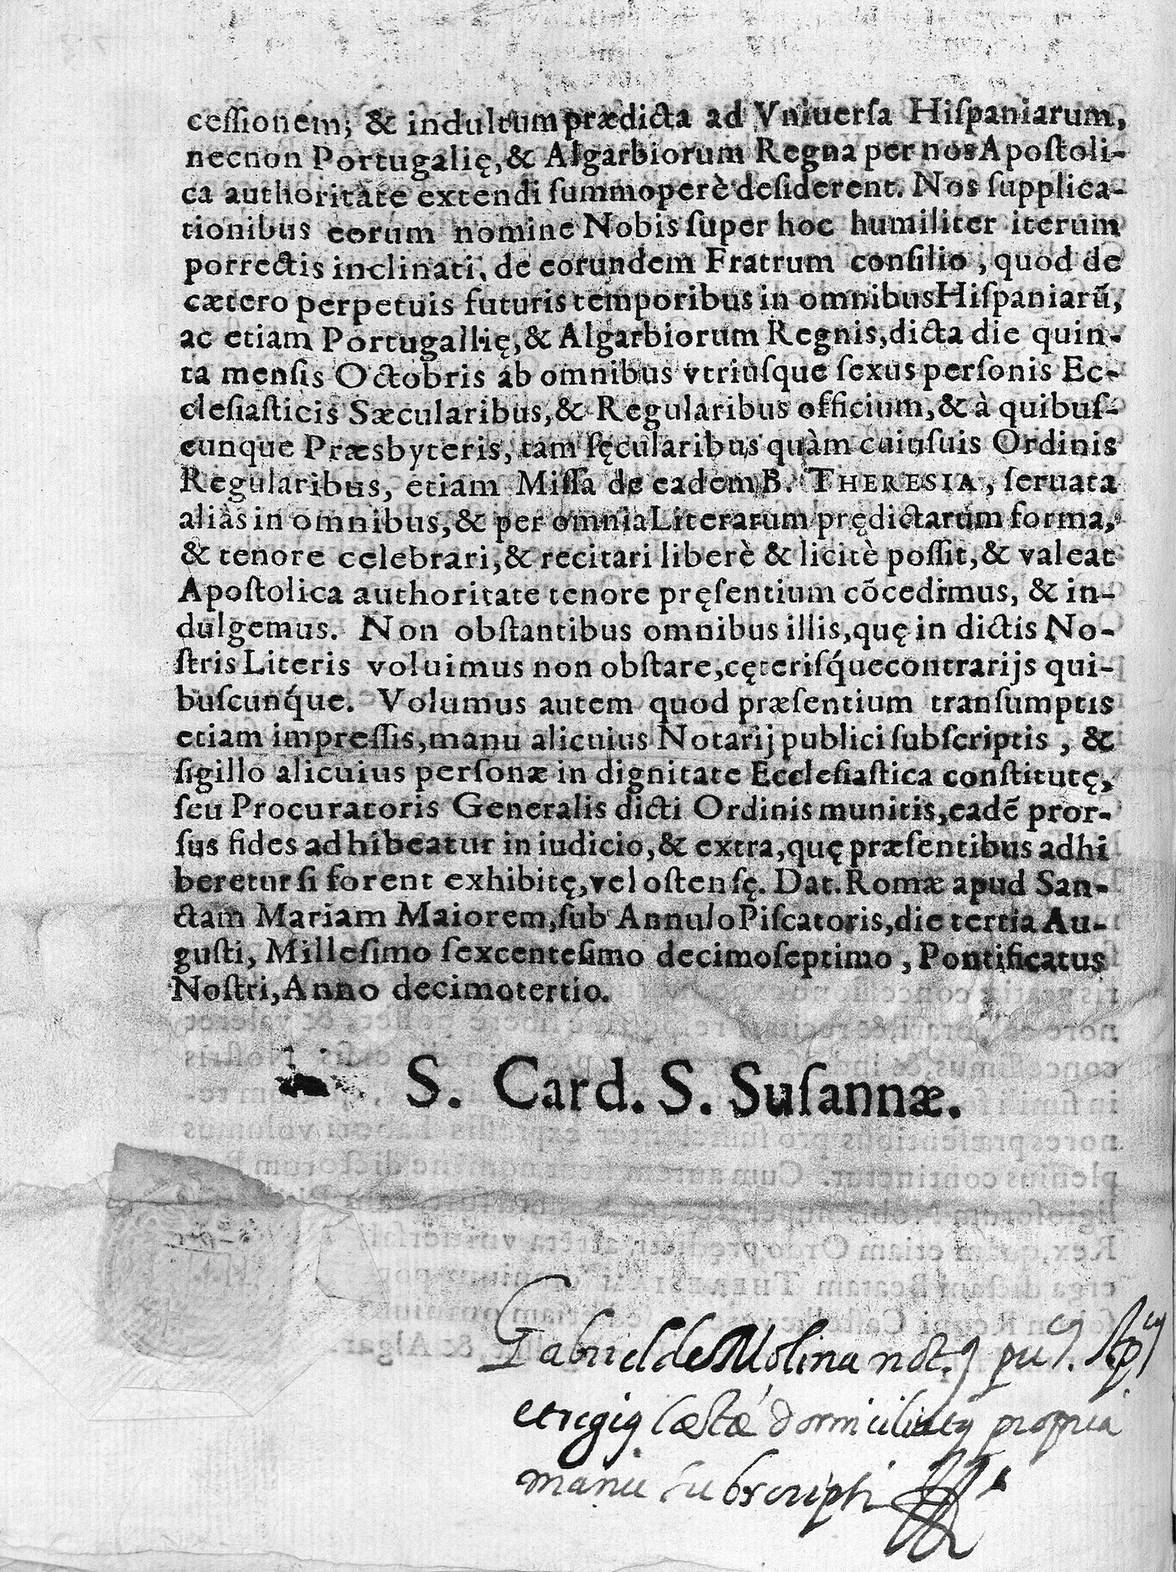 ceſſionem, & indultum prædicta ad Vniuerſa Hiſpaniarum,
necnon Portugalię, & Algarbiorum Regna per nos Apoſtoli-
ca authoritate extendi ſummoperè deſiderent. Nos ſupplica-
tionibus eorum nomine Nobis ſuper hoc humiliter iterum
porrectis inclinati, de eorundem Fratrum conſilio, quod de
cætero perpetuis futuris temporibus in omnibus Hiſpaniarū,
ac etiam Portugallię, & Algarbiorum Regnis, dicta die quin-
ta menſis Octobris ab omnibus vtriuſque ſexus perſonis Ec-
cleſiaſticis Sæcularibus, & Regularibus officium, & à quibuſ-
cunque Præsbyteris, tam ſęcularibus quàm cuiuſuis Ordinis
Regularibus, etiam Miſſa de eadem B. THERESIA, ſeruata
aliàs in omnibus, & per omnia Literarum prędictarum forma,
& tenore celebrari, & recitari liberè & licitè poſſit, & valeat
Apoſtolica authoritate tenore pręſentium cõcedimus, & in-
dulgemus. Non obſtantibus omnibus illis, quę in dictis No-
ſtris Literis voluimus non obſtare, cęteriſq́ue contrarijs qui-
buſcunq́ue. Volumus autem quod præſentium tranſumptis
etiam impreſſis, manu alicuius Notarij publici ſubſcriptis, &
ſigillo alicuius perſonæ in dignitate Eccleſiaſtica conſtitutę,
ſeu Procuratoris Generalis dicti Ordinis munitis, eadẽ pror-
ſus fides adhibeatur in iudicio, & extra, quę præſentibus adhi
beretur ſi forent exhibitę, vel oſtenſę. Dat. Romæ apud San-
ctam Mariam Maiorem, ſub Annulo Piſcatoris, die tertia Au-
guſti, Milleſimo ſexcenteſimo decimoſeptimo, Pontificatus
Noſtri, Anno decimotertio.
S. Card. S. Suſannæ.
Gabriel de Molina
propria
manu subscripsi